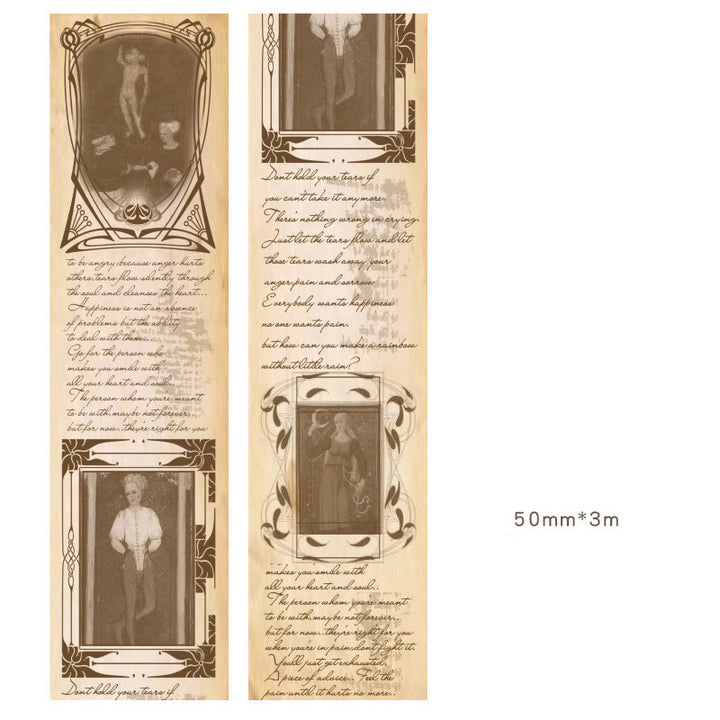 to be angry, because anger hurts
others, tears flow silently through
the soul and cleanses the heart...
Happiness is not an absence
of problems but the ability
to deal with them...
Go for the person who
makes you smile with
all your heart and soul..
The person whom you're meant
to be with, maybe not forever..
but for now...they're right for you
Dont hold your tears if
Dont hold your tears if
you can't take it any more.
There's nothing wrong in crying.
Just let the tears flow and let
those tears wash away your
anger, pain and sorrow
Everybody wants happiness
no one wants pain
but how can you make a rainbow
without little rain?
makes you smile with
all your heart and soul..
The person whom you're meant
to be with, maybe not forever..
but for now...they're right for you
when you're in pain, dont fight it.
You'll just get exhausted
A piece of advice.. Feel the
pain until it hurts no more..
50mm*3m